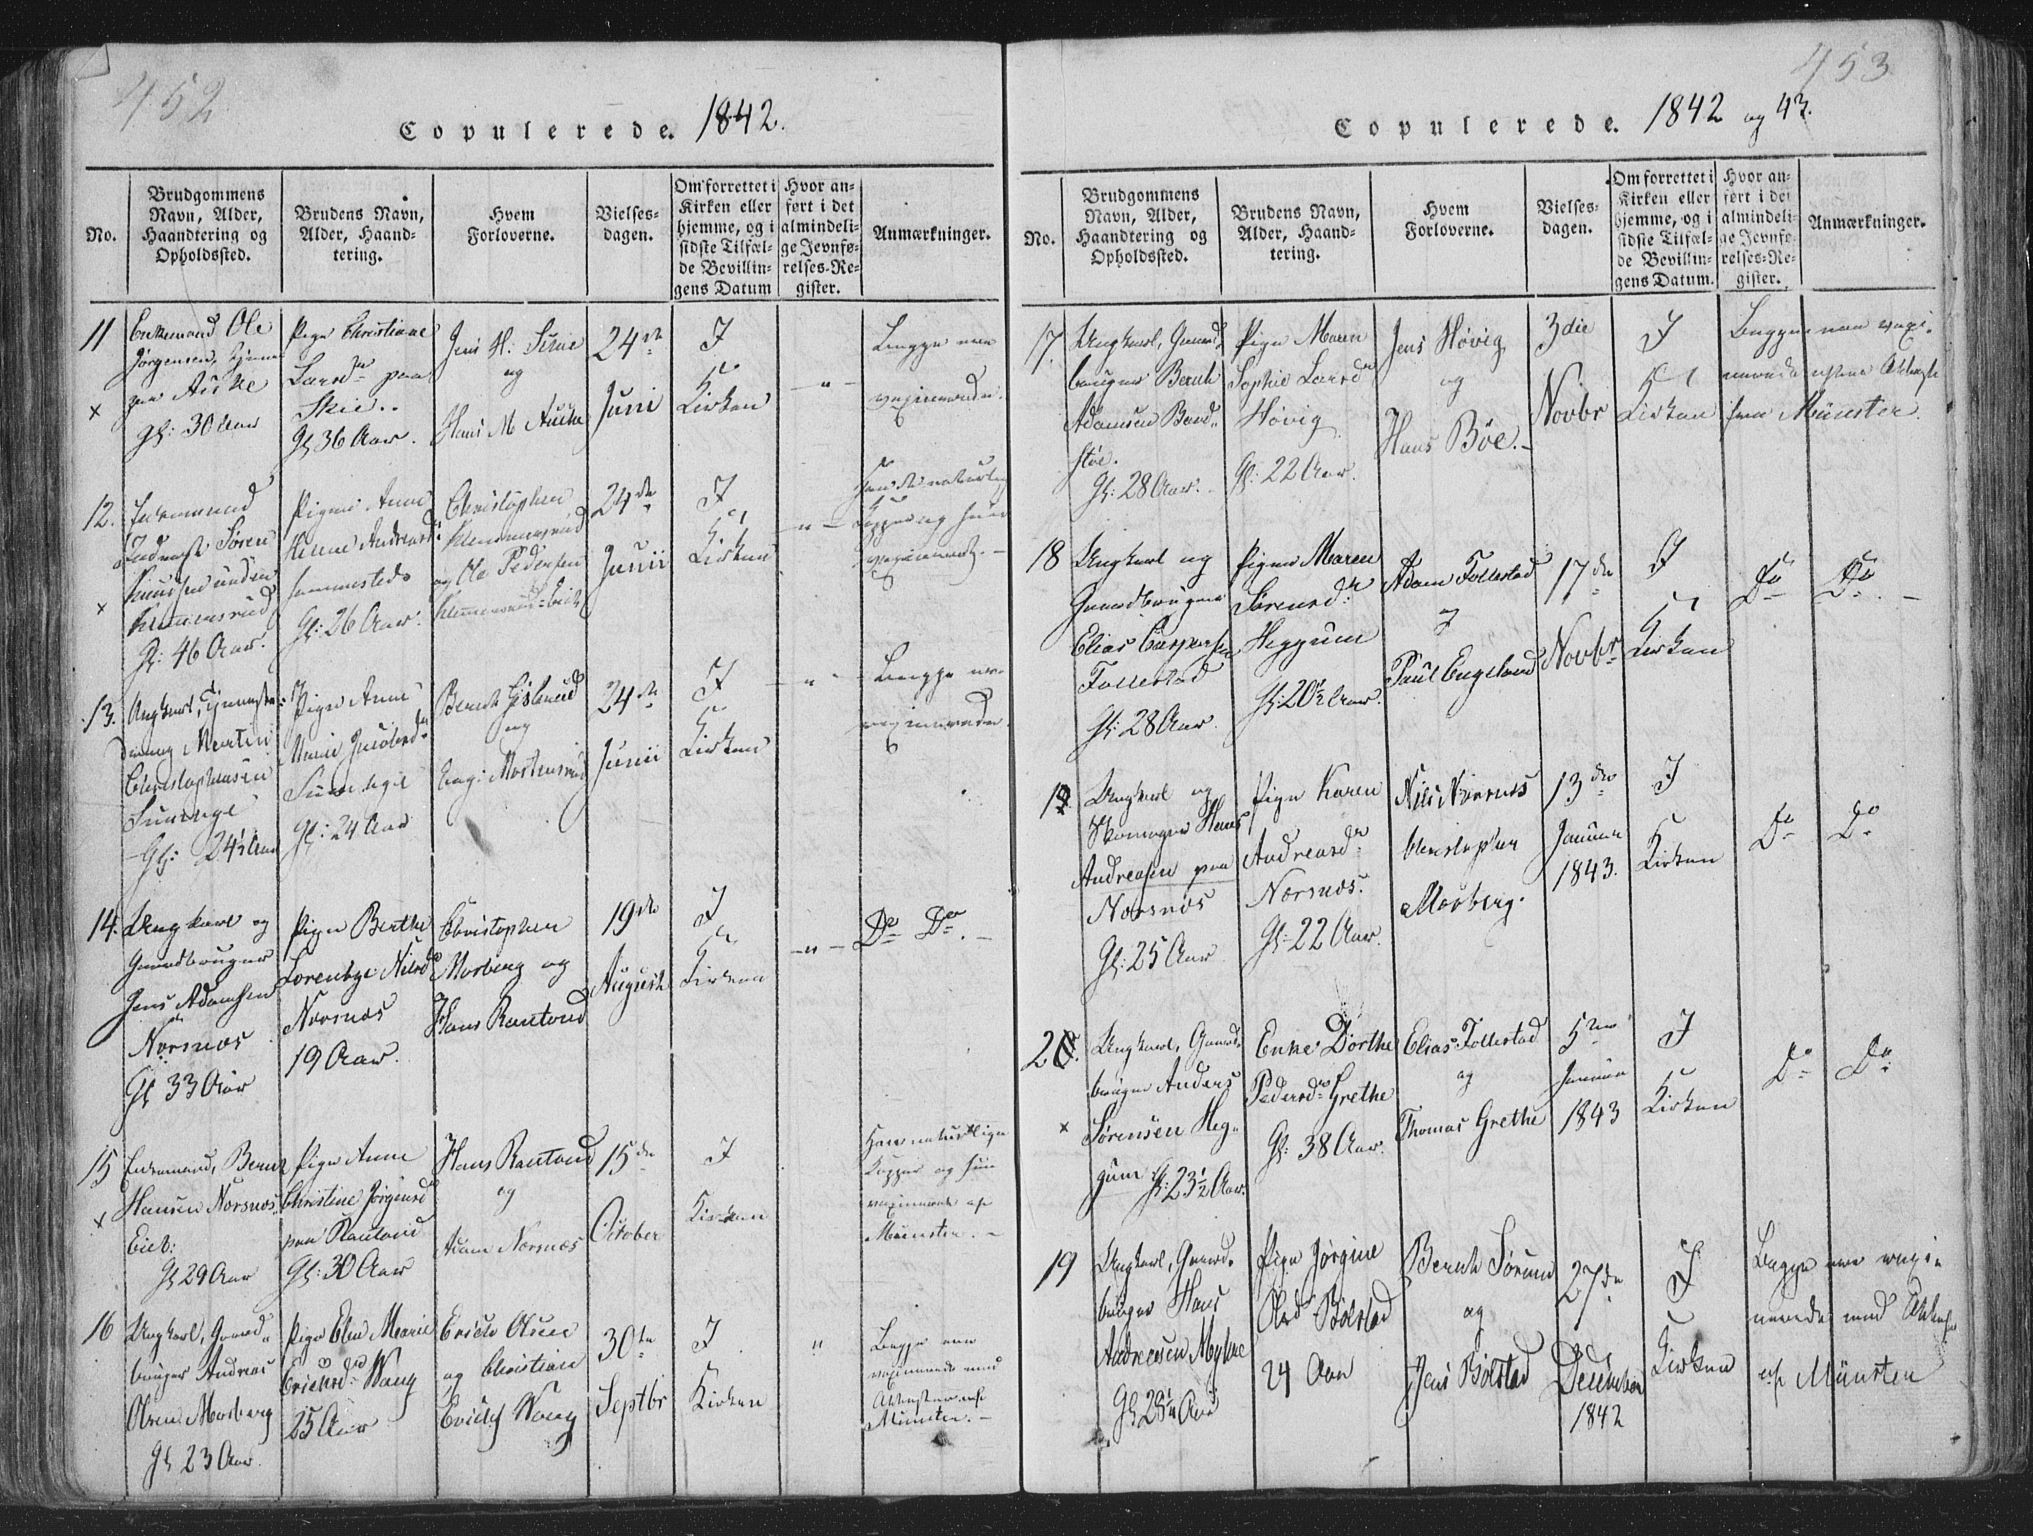 452
Copulerede. 1842.
No.
Brudgommens
Navn, Alder,
Haandtering og
Opholdssted.
Brudens Navn,
Alder, Haand-
tering.
Hvem
Forloverne.
Vielses-
dagen.
Om forrettet i
Kirken eller
hjemme, og i
sidste Tilfæl-
de Bevillin-
gens Datum
Hvor an-
ført i det
almindeli-
ge Jevnfø-
relses-Re-
gister.
Anmærkninger.
11
Enkemand Ole
Jørgensen
paa
Gl: 30 Aar
Pige Christiane
Larsdr paa
Skie..
Gl 36 Aar.
Jens H.
og
Hans M
24de
Juni
I
Kirken
Begge ere
vaxinerede.
12.
Enkemand
Søren
Knudsen under
Klemmesrud
Gl: 46 Aar.
Pigen Anne
Helene Andreasdr
sammesteds
Gl: 26 Aar.
Christopher
Klemmesrud
og Ole Pedersen
Klemmesrud-eie
24de
Junii
I
Kirken
Han de naturlige
Kopper og hun
vaxineret.
13.
Ungkarl, Tjeneste-
dreng Martin
Christophersen
Gl: 24½ Aar
Pige Anne
Marie Jacobsd.
Gl: 24 Aar
Bernt Gislerud
og
24de
Junii
I
Kirken
Begge ere
vaxinerede.
14.
Ungkarl og
Gaardbruger
Jens Adamsen
Norsnæs
Gl 33 Aar
Pige Berthe
Lorentze Nilsd
Norsnæs
19 Aar.
Christopher
Morberg og
Hans Rantoud
19de
August
I
Kirken
Do Do.
15
Enkemand, Bernt
Hansen Norsnæs
Eiet:
Gl 29 Aar
Pige Anne
Christine Jørgensd
paa Rantoud
Gl: 30 Aar
Hans Rantoud
og
Adam Norsnæs
15de
October
I
Kirken
Han naturlige
Kopper og hun
vaxineret af
Münster.
16
Ungkarl, Gaard-
bruger Andreas
Olsen Morberg
Gl 23 Aar.
Pige Elen Marie
Erichsdr Wang
25 Aar
Erich Olsen
og Christian
Erichs Wang
30te
Septbr
I
Kirken
Begge ere
vaxinerede med
Attester af
Münster.
453
Copulerede. 1842 og 43.
No.
Brudgommens
Navn, Alder,
Haandtering og
Opholdssted.
Brudens Navn,
Alder, Haand-
tering.
Hvem
Forloverne.
Vielses-
dagen.
Om forrettet i
Kirken eller
hjemme, og i
sidste Tilfæl-
de Bevillin-
gens Datum.
Hvor an-
ført i det
almindeli-
ge Jevnfø-
relses-Re-
gister.
Anmærkninger.
17.
Ungkarl, Gaard-
bruger Bernt
Adamsen Baad-
støe.
Gl: 28 Aar.
Pige Maren
Sophie Larsdr
Høvig
Gl: 22 Aar.
Jens Høvig
og
Hans Böe.
3die
Novbr
I
Kirken
Begge ere vaxi-
nerede efter Attest
fra Münster.
18
Ungkarl og
Gaardbruger
Elias Caspersen
Follestad
Gl: 28 Aar.
Pigen Maren
Sørensdr
Heggum
Gl: 20½ Aar.
Adam Follestad
og
Paul Engelsrud
17de
Novbr
I
Kirken
Do
Do.
Ungkarl og
Skomager Hans
Andreasen paa
Norsnæs
Gl: 25 Aar
Pige Karen
Andreasdr
Norsnæs.
Gl: 22 Aar.
Nils Norsnæs
Christopher
Morberg.
13de
Januar
1843.
I
Kirken
Do
Do
20.
Ungkarl, Gaard-
bruger Anders
Sørensen Heg-
gum Gl: 23½ Aar.
Enke Dorthe
Pedersdr Grethe
Gl: 38 Aar.
Elias Follestad
og
Thomas Grethe
5te
Januar
1843
I
Kirken
Do
Do
19
Ungkarl, Gaard-
bruger Hans
Andreasen Myhre
Gl 28¼ Aar
Pige Jørgine
Olsd Bölstad
24 Aar
Bernt Sørum
og
Jens Bölstad
27de
December
1842
I
Kirken
Begge ere vaxi-
nerede med Attest
af Münster